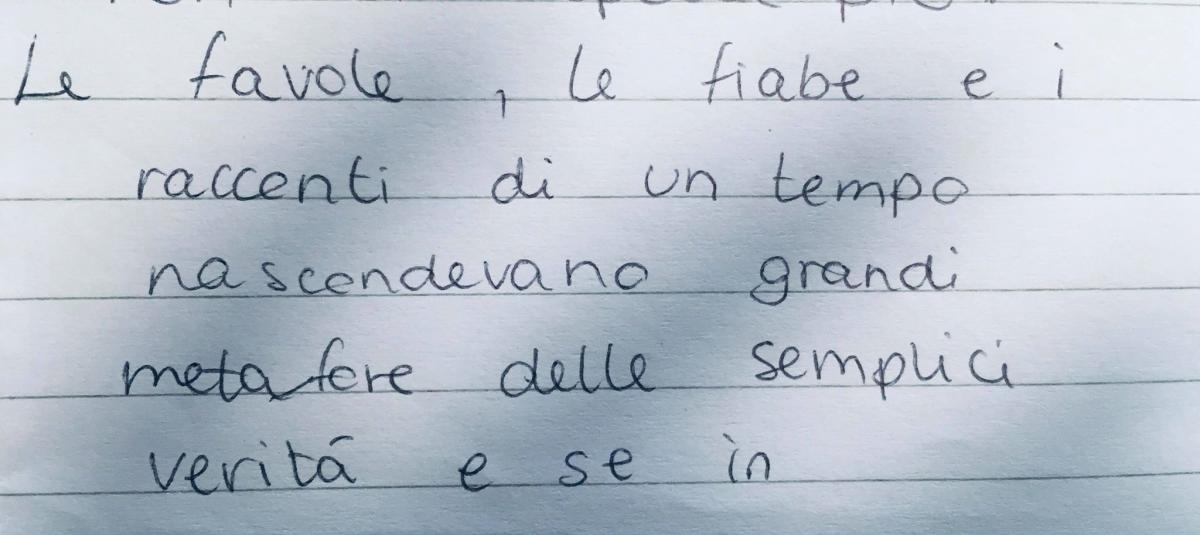 Le favole, le fiabe e i
racconti di un tempo
nascondevano grandi
metafore delle semplici
verità e se in